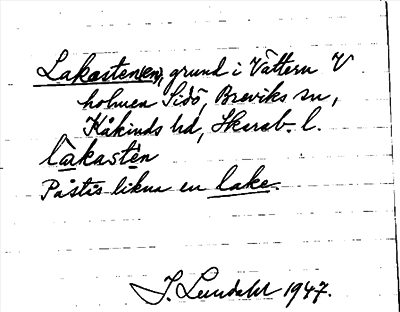 Lakasten(en), grund i Vättern V
holmen Sidö, Breviks sn,
Kåkinds hd, Skarab. l.
lakastèn
Påstås likna en lake.
J. Lundahl 1947.